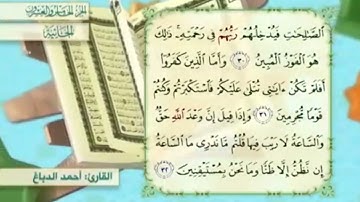 الجاثية
الصَّٰلِحَٰتِ فَيُدْخِلُهُمْ رَبُّهُمْ فِى رَحْمَتِهِۦ ۚ ذَٰلِكَ
هُوَ ٱلْفَوْزُ ٱلْمُبِينُ ٣٠ وَأَمَّا ٱلَّذِينَ كَفَرُوٓا۟
أَفَلَمْ تَكُنْ ءَايَٰتِى تُتْلَىٰ عَلَيْكُمْ فَٱسْتَكْبَرْتُمْ وَكُنتُمْ
قَوْمًا مُّجْرِمِينَ ٣١ وَإِذَا قِيلَ إِنَّ وَعْدَ ٱللَّهِ حَقٌّ
وَٱلسَّاعَةُ لَا رَيْبَ فِيهَا قُلْتُم مَّا نَدْرِى مَا ٱلسَّاعَةُ
إِن نَّظُنُّ إِلَّا ظَنًّا وَمَا نَحْنُ بِمُسْتَيْقِنِينَ ٣٢
القارئ: أحمد الدباغ